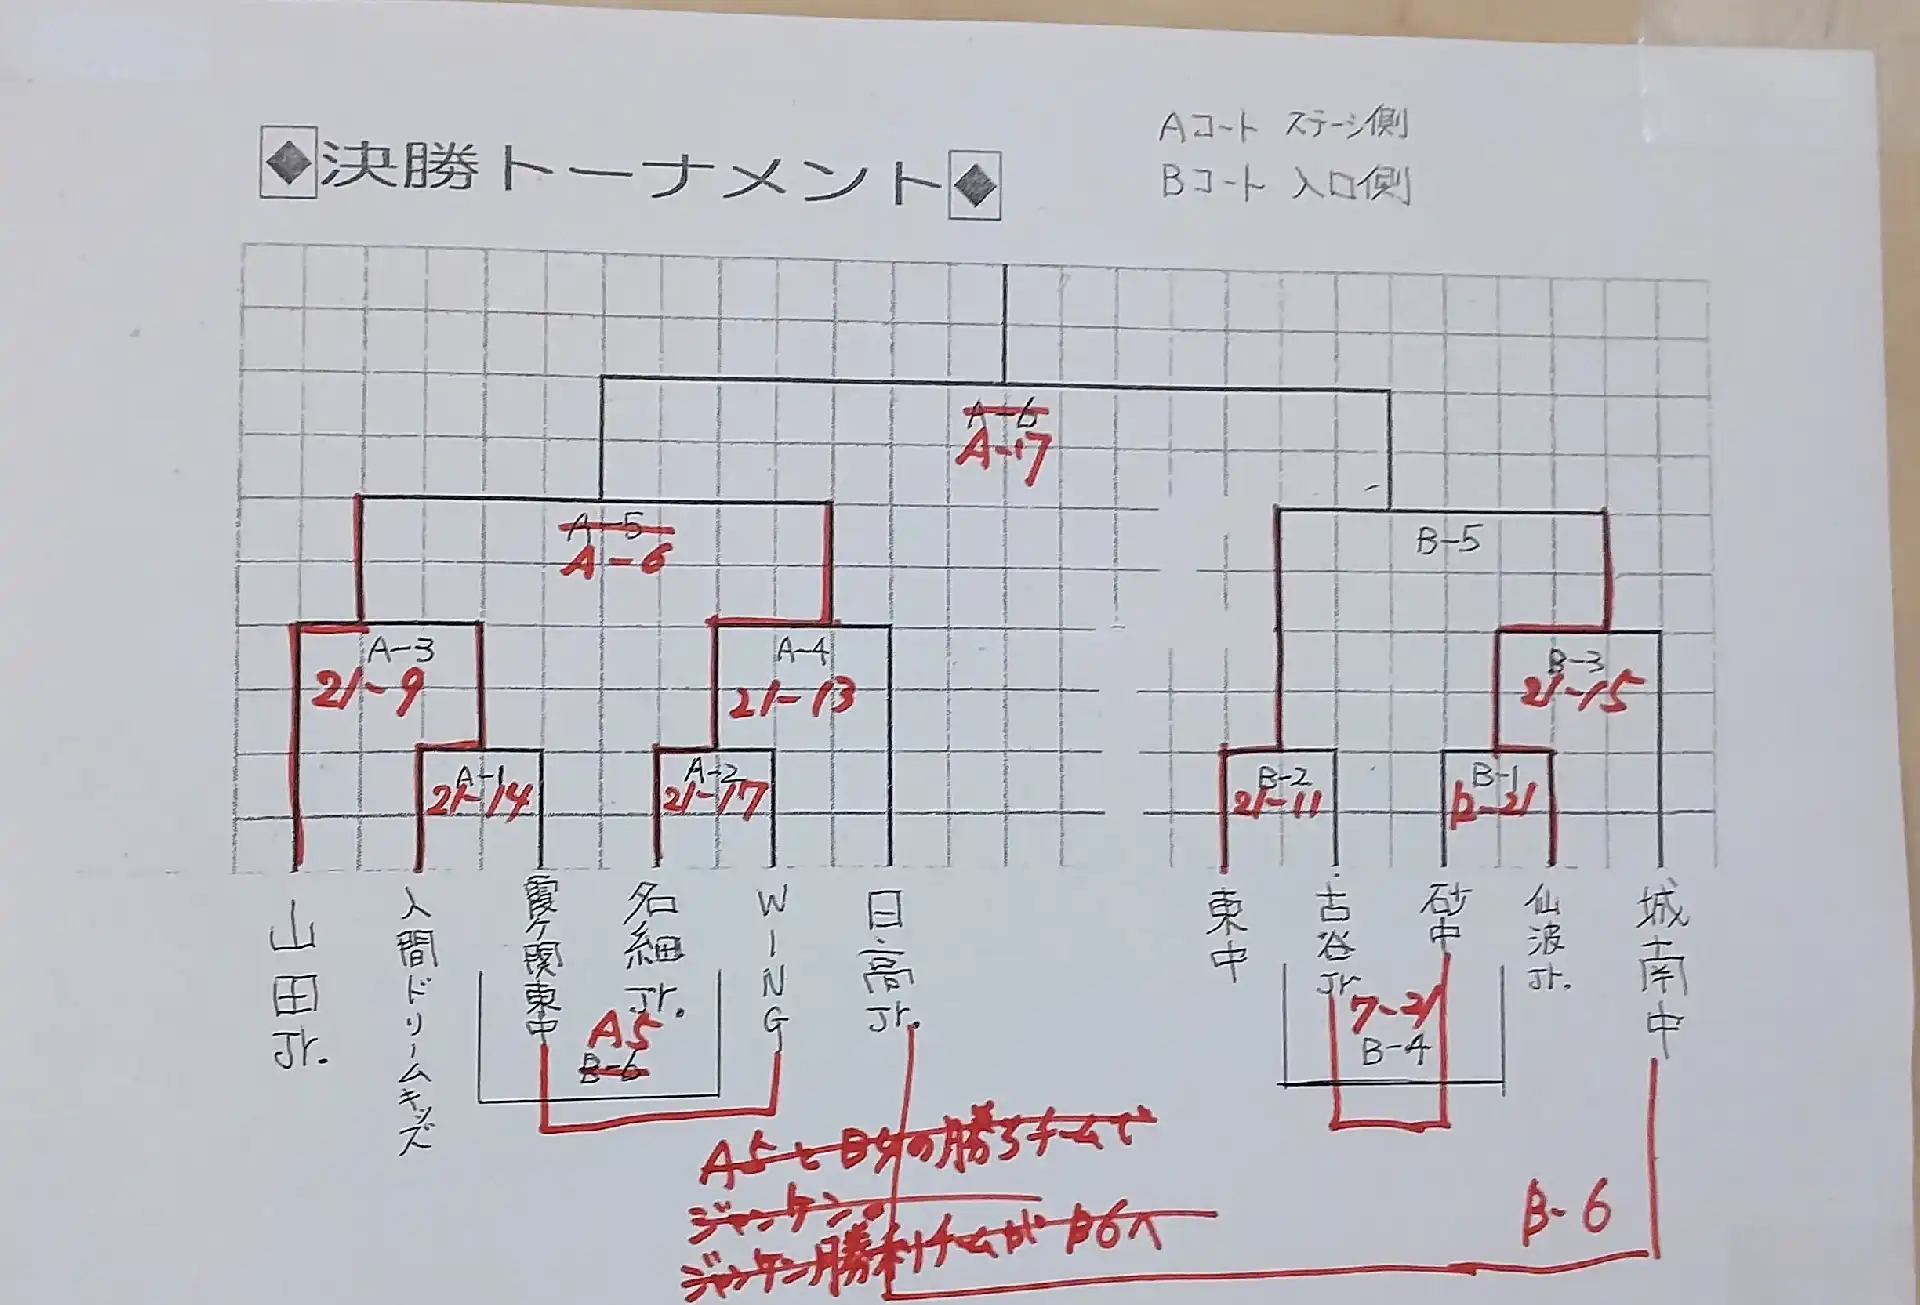 ◆決勝トーナメント◆
Aコート ステージ側
Bコート 入口側
A-6
A-7
A-5
A-6
B-5
A-3
21-9
A-4
21-13
B-3
21-15
A-1
21-14
A-2
21-17
B-2
21-11
B-1
12-21
山田Jr.
入間ドリームキッズ
霞ヶ関東中
名細Jr.
WING
日高Jr.
東中
古谷Jr
砂中
仙波Jr.
城南中
A5
B-6
7-21
B-4
ジャンケン
ジャンケン勝利チームが B6へ
B-6